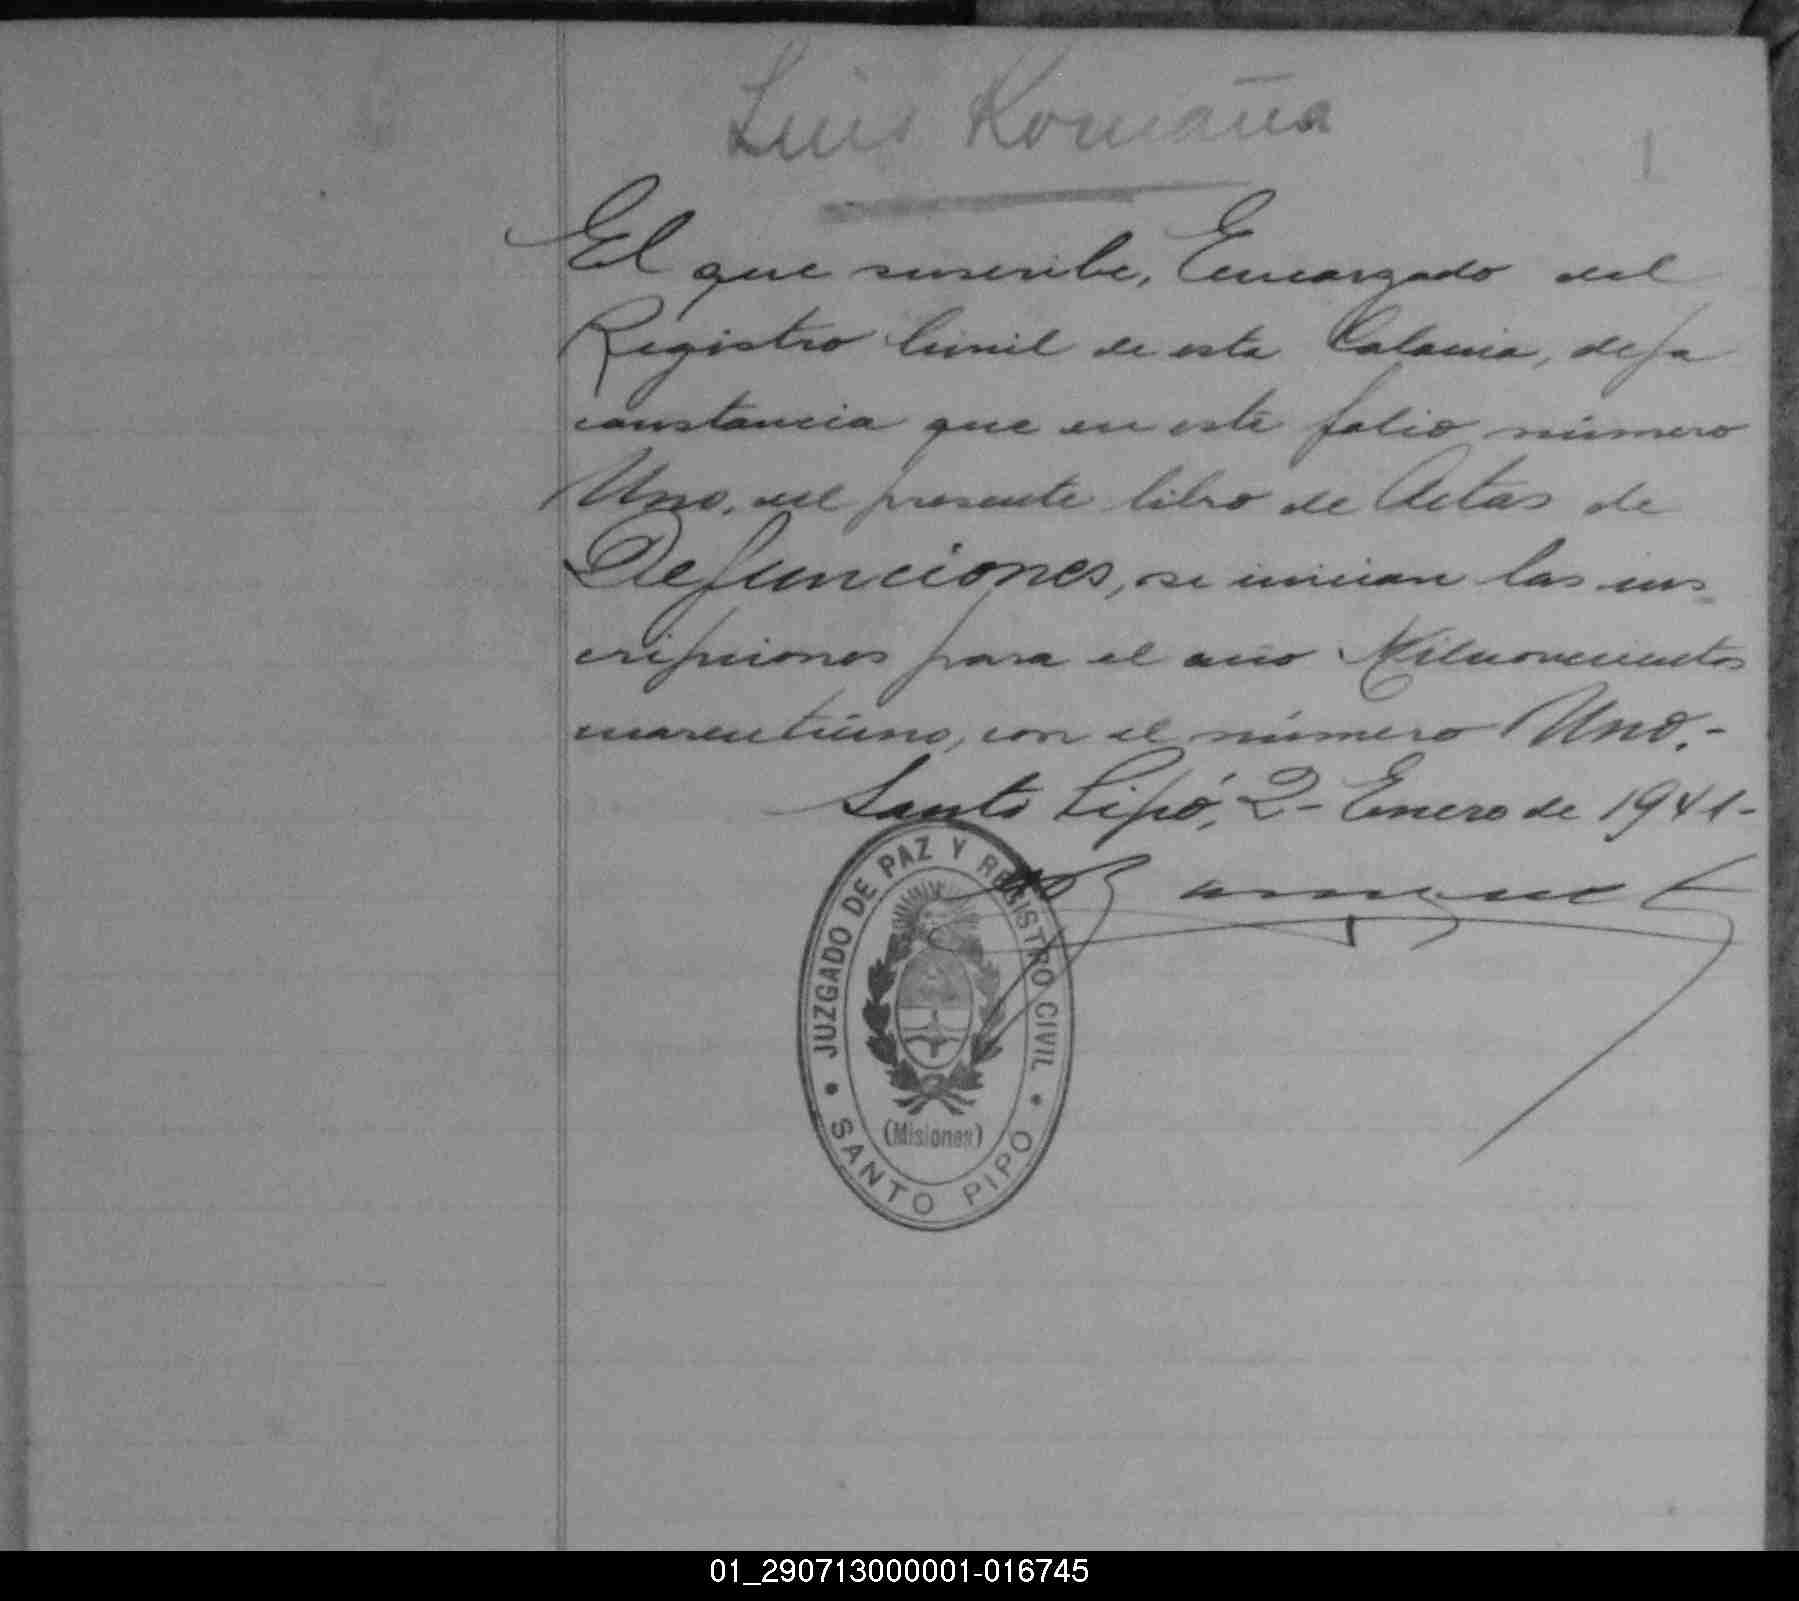 Luis Romaña
1
El que suscribe, Encargado del
Registro Civil de esta Colonia, deja
constancia que en este folio número
Uno, del presente libro de Actas de
Defunciones, se inician las ins
cripciones para el año Milnovecientos
cuarentiúno, con el número Uno.-
Santo Pipó, 2- Enero de 1941-
JUZGADO DE PAZ Y REGISTRO CIVIL
(Misiones)
• SANTO PIPO •
01_290713000001-016745